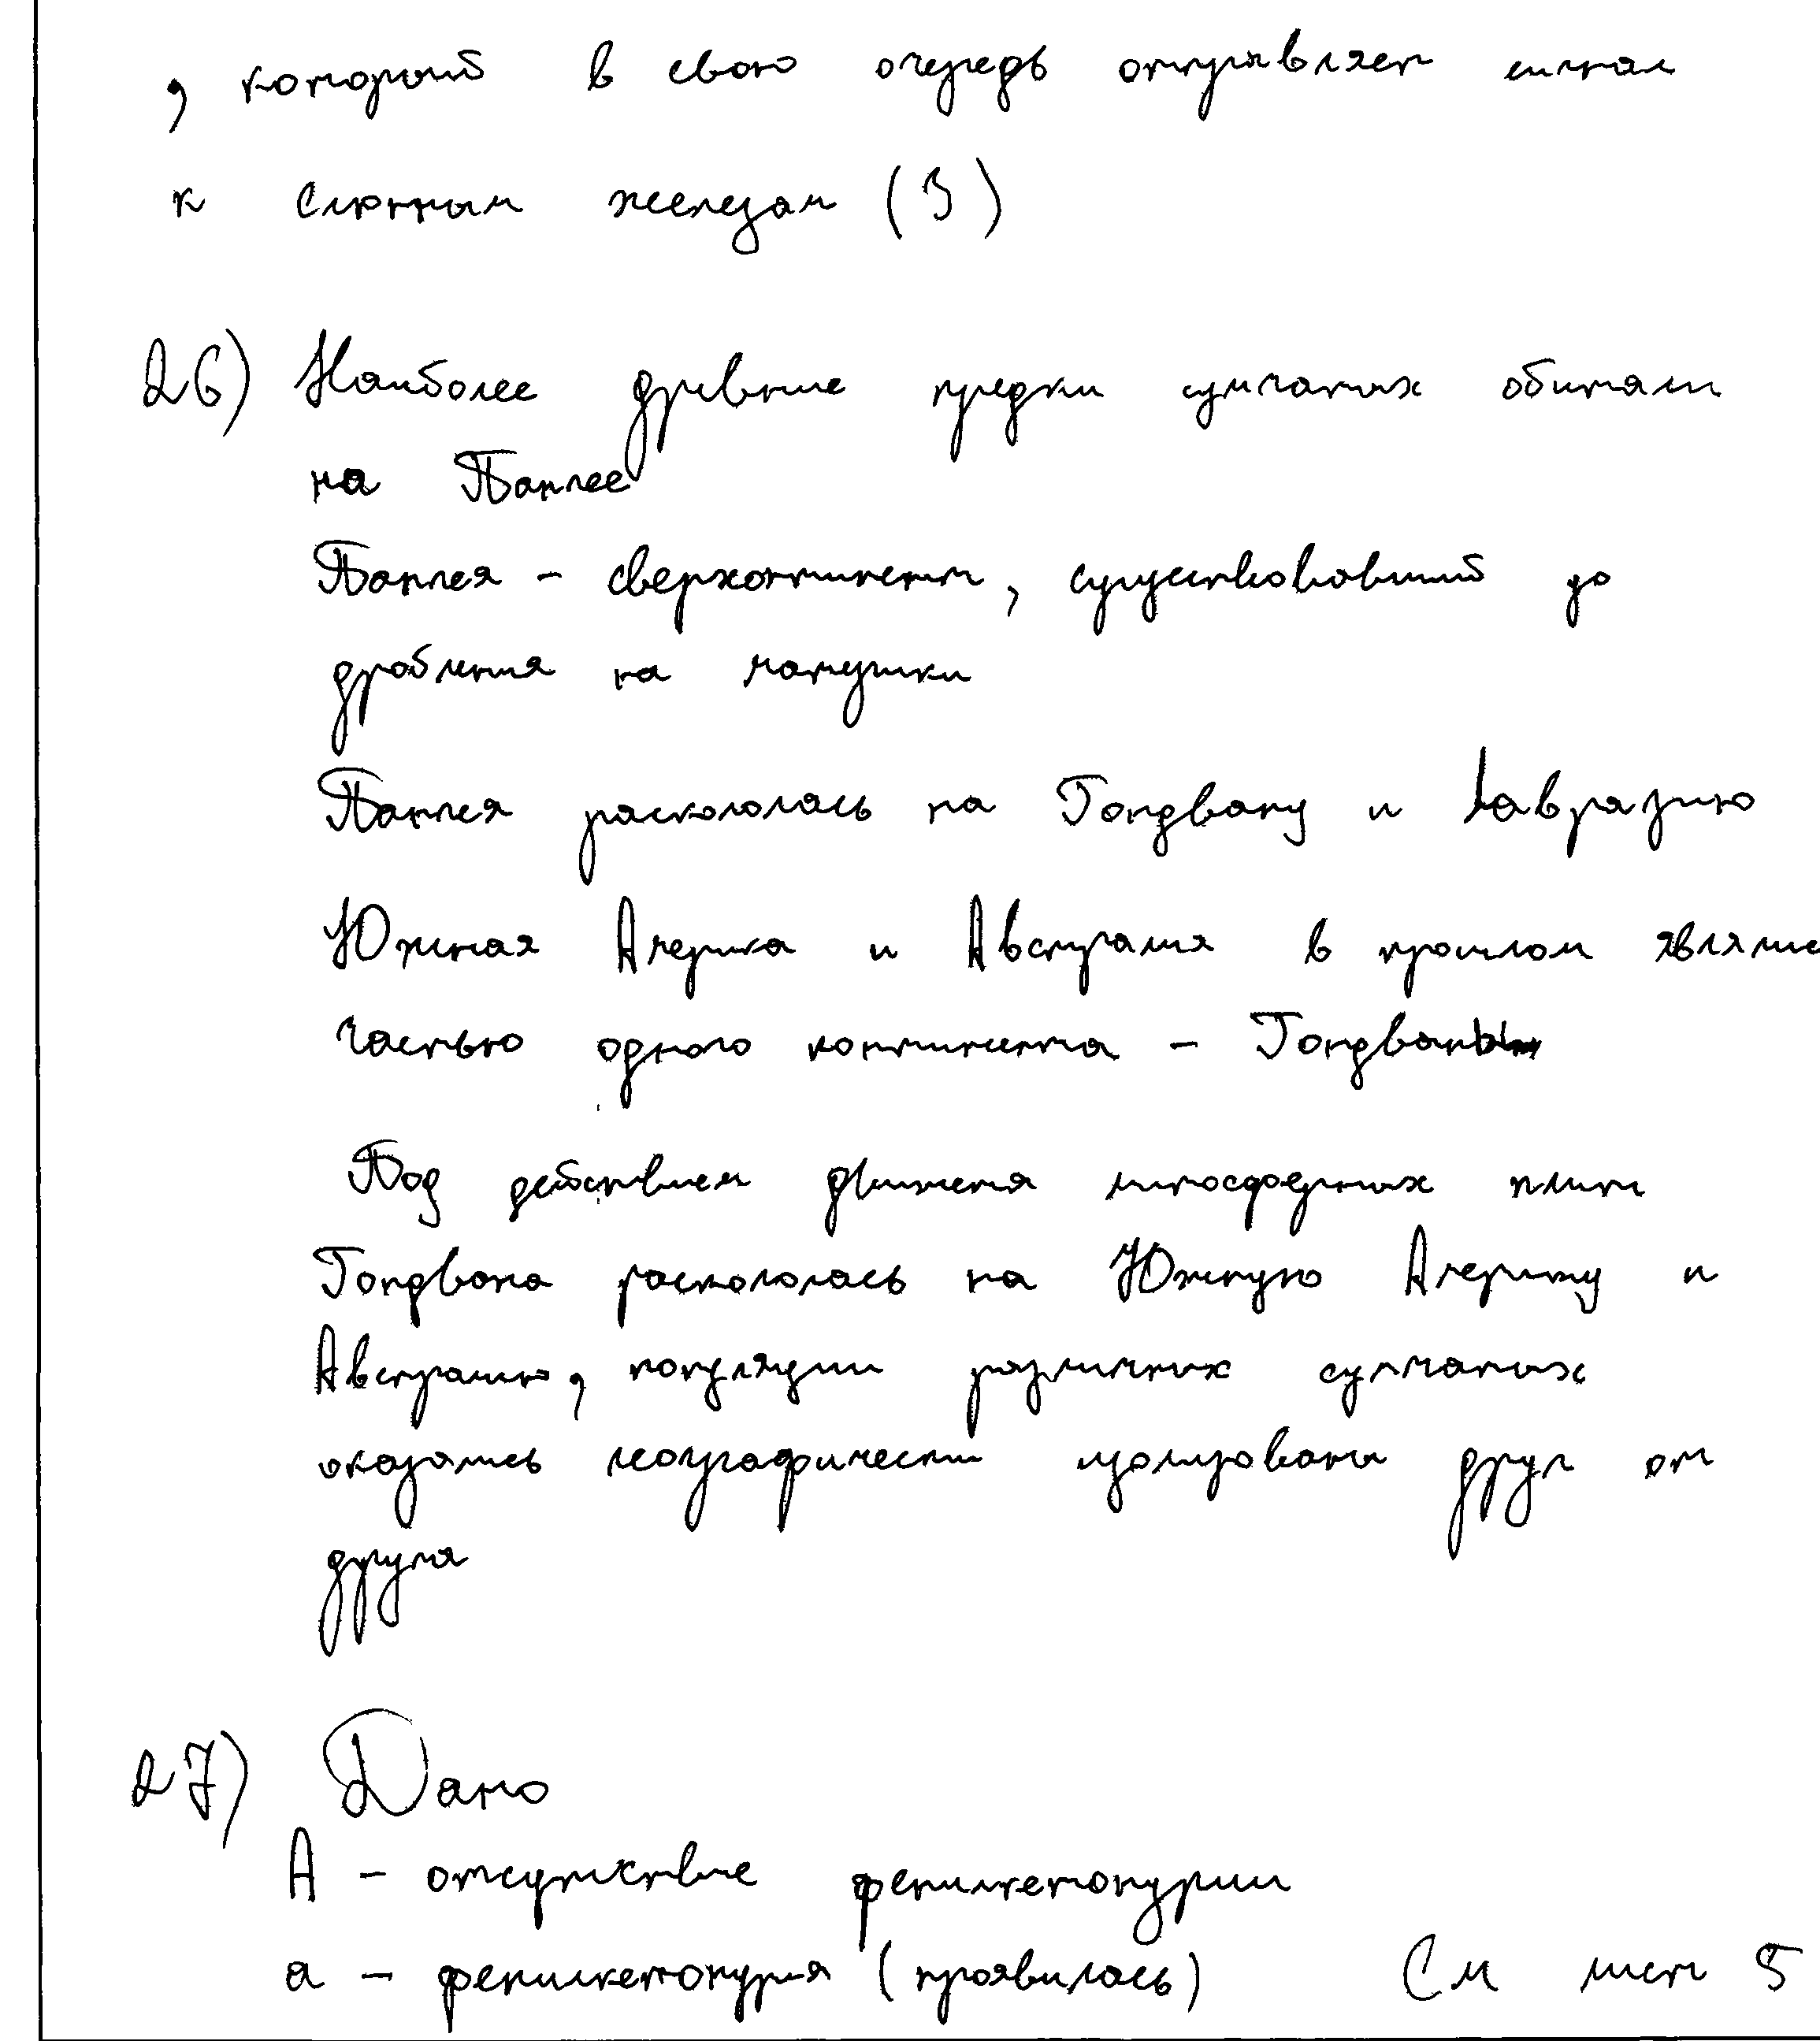 , который в свою очередь отправляет сигнал
к слюнным железам (3)
26) Наиболее древние предки сумчатых обитали
на Пангее
Пангея - сверхконтинент, существовавший до
дробления на матушки
Пангея раскололась на Гондвану и Лавразию
Южная Америка и Австралия в прошлом являлис
частью одного континента - Гондваны
Под действием движения литосферных плит
Гондвана раскололась на Южную Америку и
Австралию, популяции различных сумчатых
оказались географически изолированы друг от
друга
27) Дано
А - отсутствие фенилкетонурии
а - фенилкетонурия (проявилась) См лист 5